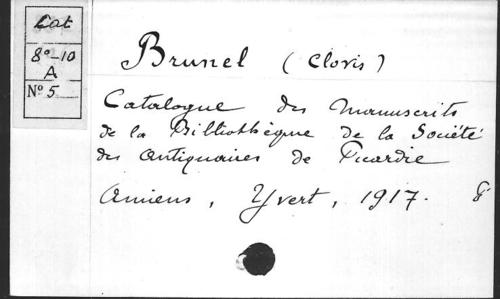 Cat
8°-10
A
N° 5
Brunel (Clovis)
Catalogue des Manuscrits
de la Bibliothèque de la Société
des Antiquaires de Picardie
Amiens, Yvert, 1917. 8°